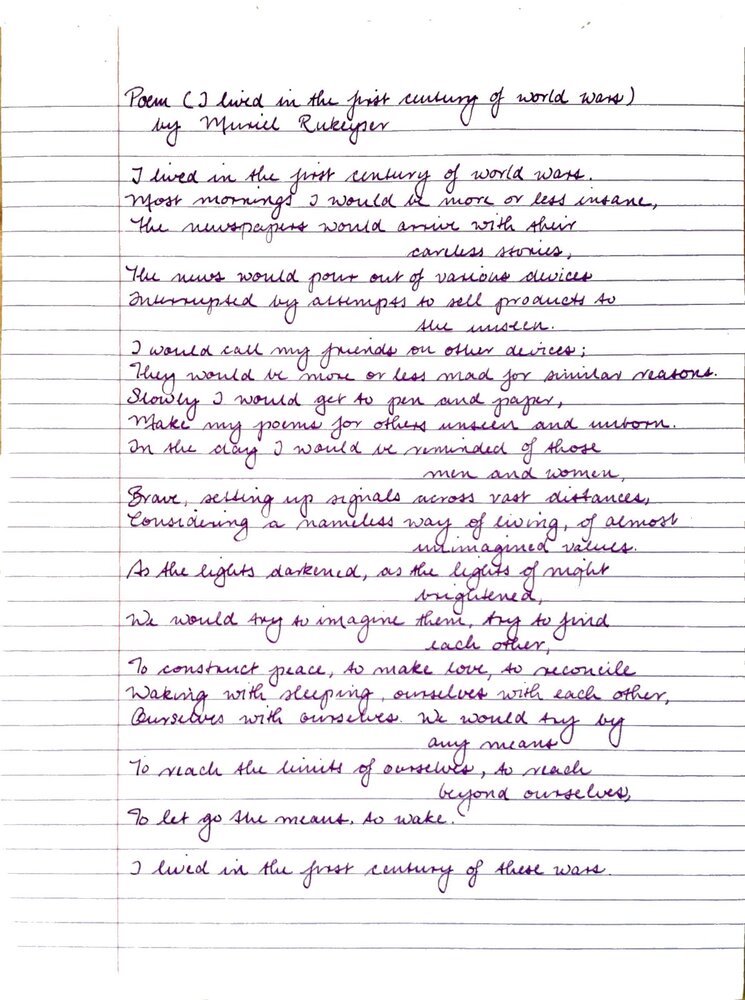 Poem (I lived in the first century of world wars)
by Muriel Rukeyser
I lived in the first century of world wars.
Most mornings I would be more or less insane,
The newspapers would arrive with their
careless stories,
The news would pour out of various devices
Interrupted by attempts to sell products to
the unseen.
I would call my friends on other devices;
They would be more or less mad for similar reasons.
Slowly I would get to pen and paper,
Make my poems for others unseen and unborn.
In the day I would be reminded of those
men and women,
Brave, setting up signals across vast distances,
Considering a nameless way of living, of almost
unimagined values.
As the lights darkened, as the lights of night
brightened,
We would try to imagine them, try to find
each other,
To construct peace, to make love, to reconcile
Waking with sleeping, ourselves with each other,
Ourselves with ourselves. We would try by
any means
To reach the limits of ourselves, to reach
beyond ourselves,
To let go the means, to wake.
I lived in the first century of these wars.